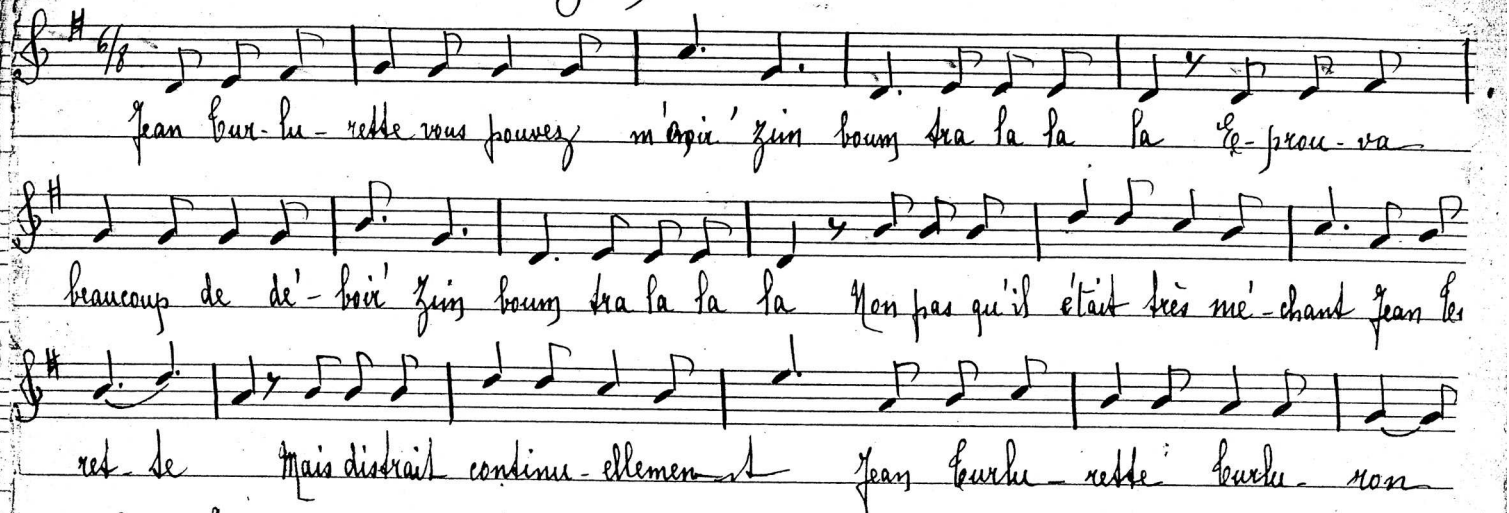 6/8
Jean Tur-lu-rette vous pouvez m'croir' Zim boum tra la la la E-prou-va
beaucoup de dé-boir' Zim boum tra la la la Non pas qu'il était très mé-chant Jean
ret-te Mais distrait continu-ellement Jean Turlu-rette Turlu-ron